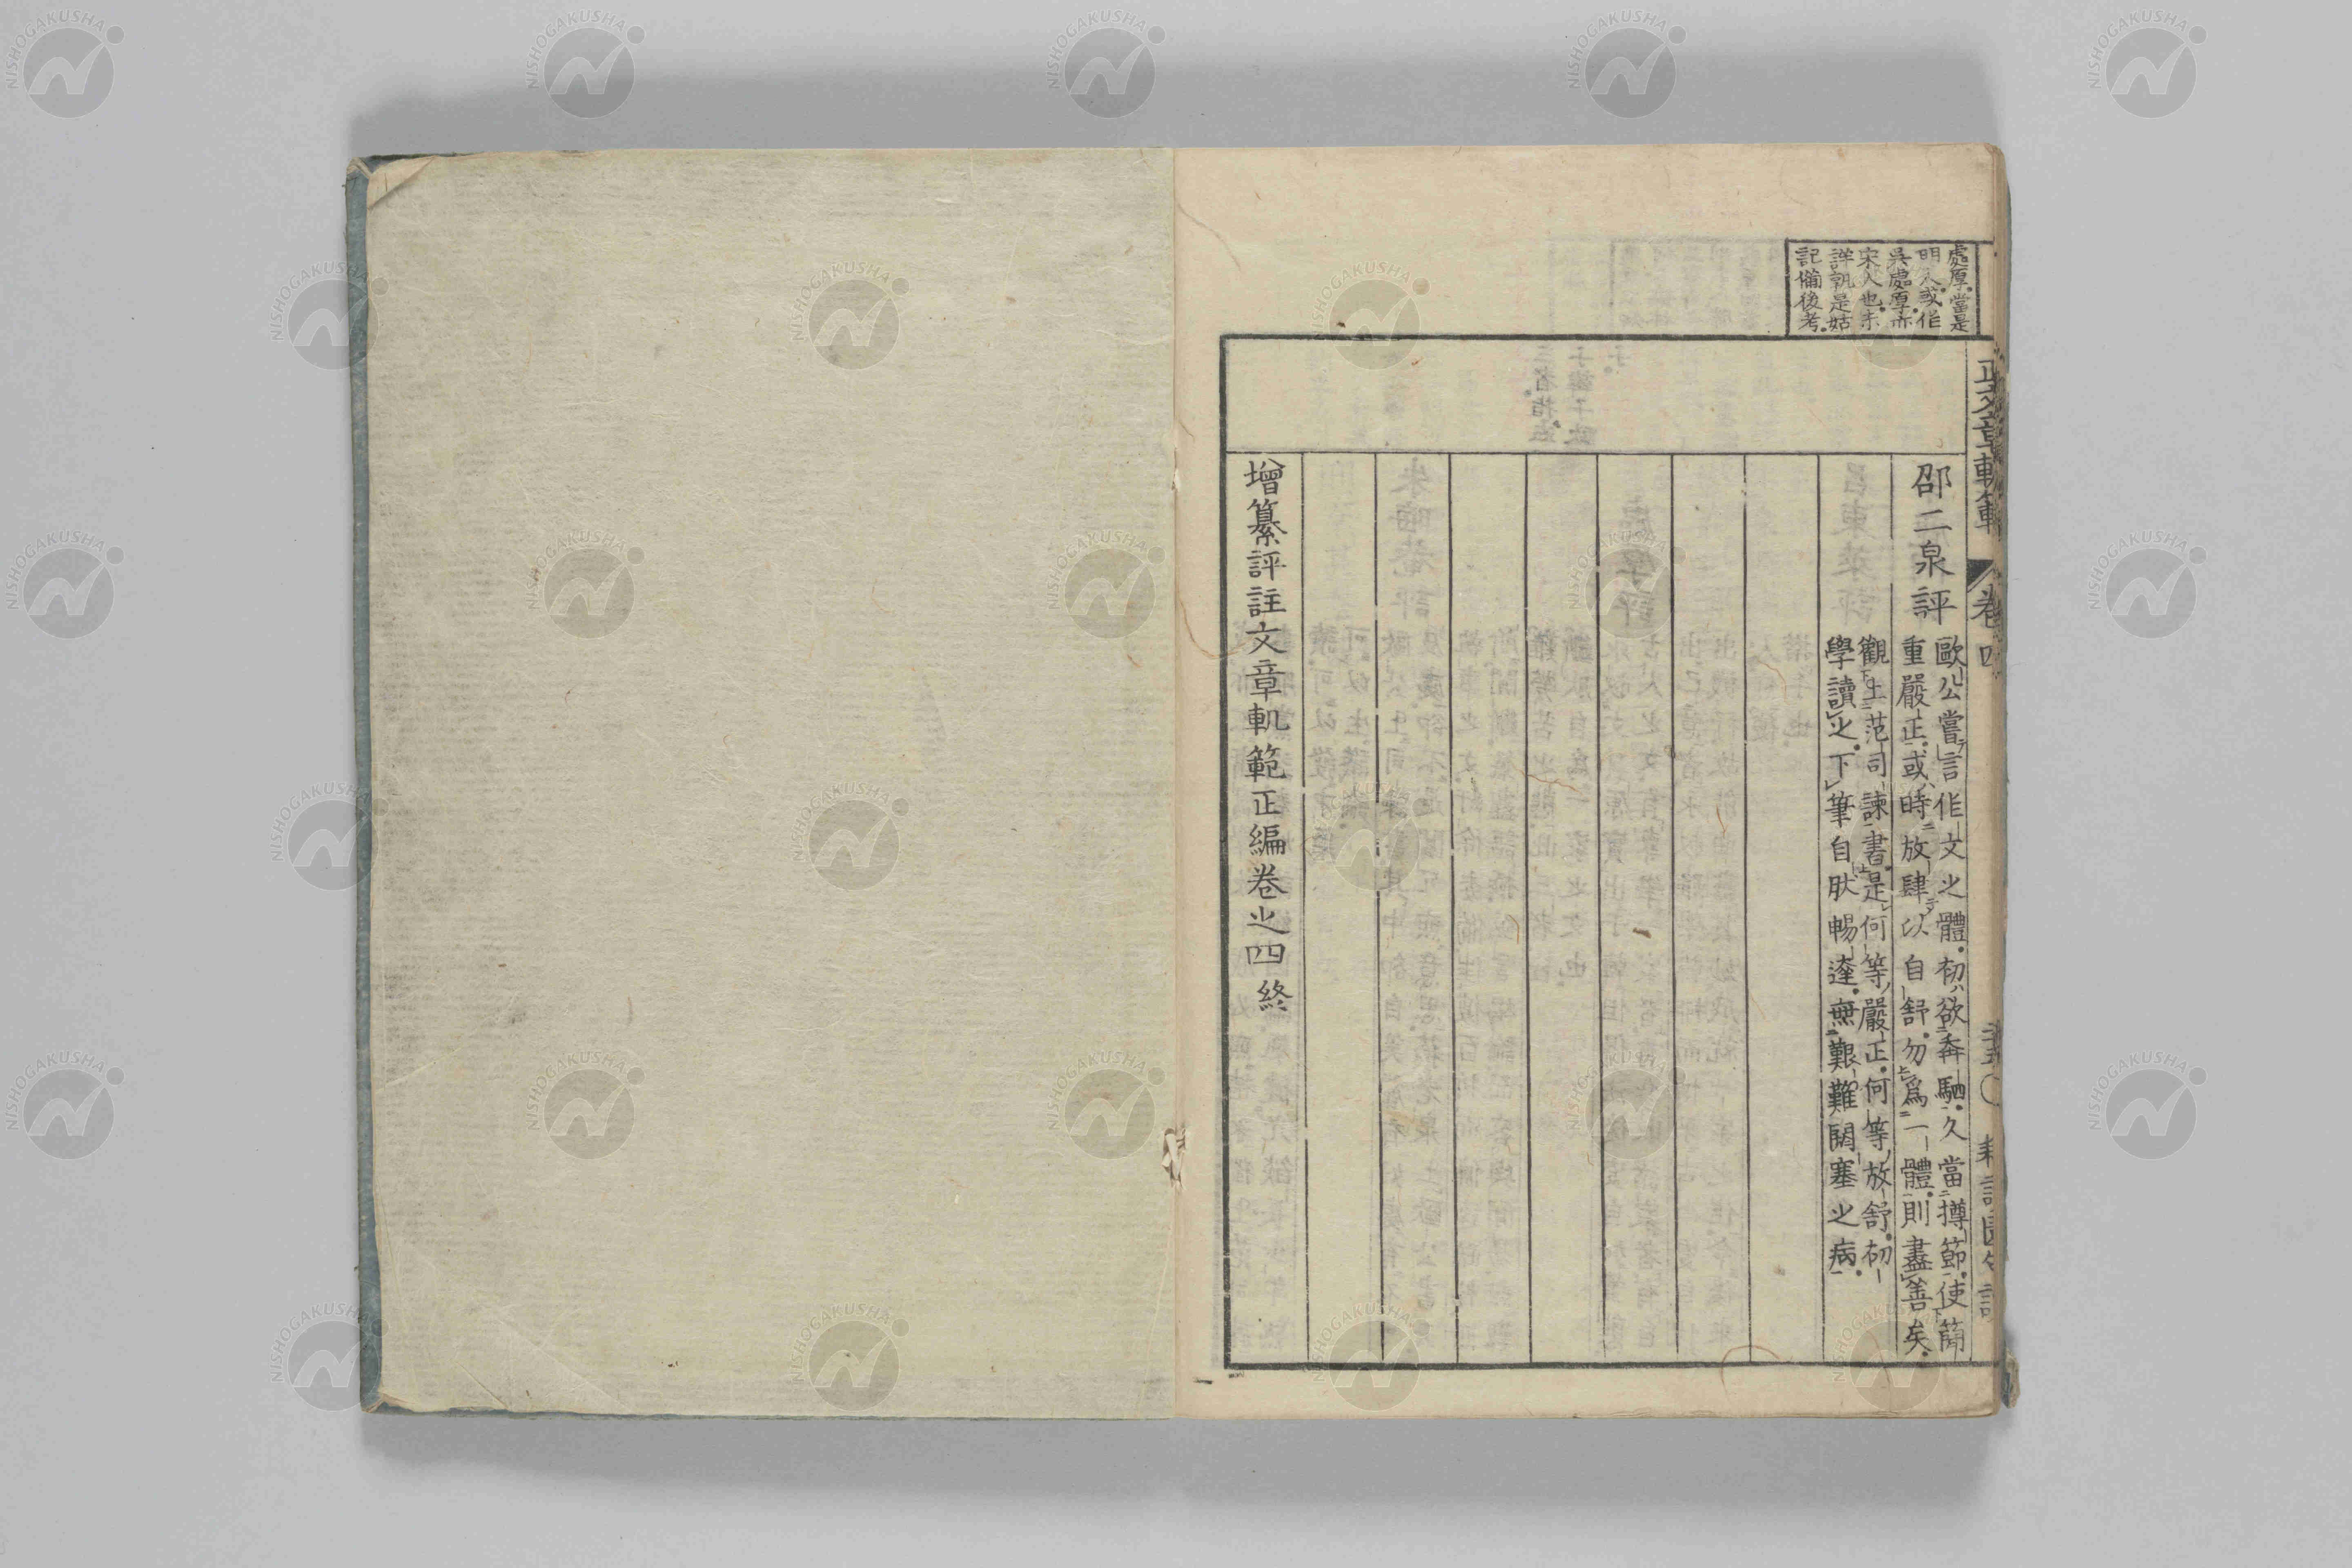 處厚當是
明人或作
吳處厚亦
宋人也未
詳孰是姑
記備後考
邵二泉評
歐公嘗言作文之體初欲奔馳久當撙節使簡
重嚴正或時放肆以自舒勿爲一體則盡善矣
觀上范司諫書是何等嚴正何等放舒初
學讀之下筆自肰暢達無艱難閼塞之病
增纂評註文章軌範正編卷之四終
卷四
NISHOGAKUSHA